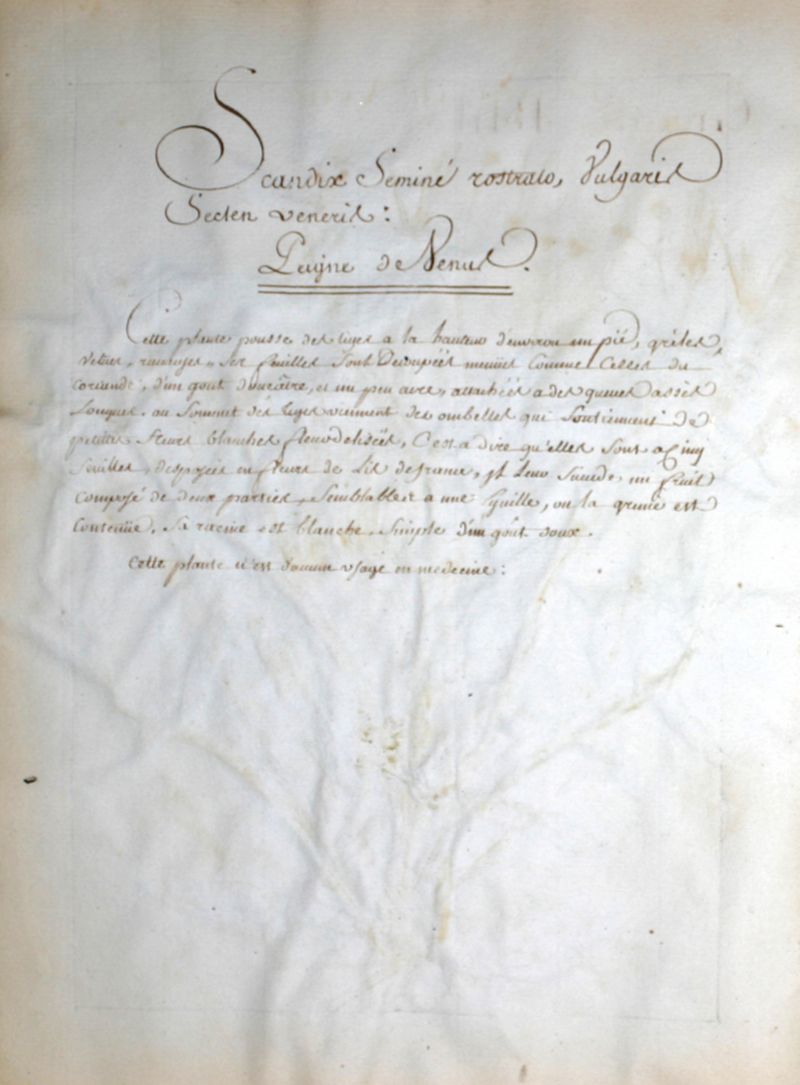 Scandix Seminé rostrato, Vulgaris
Pecten veneris:
Peigne de Venus.
Cette plante pousse des tiges a la hauteur d'environ un pié, grêles,
velues, rameuses, Ses feuilles Sont Decoupées menües Comme Celles du
Coriende, d'un gout douceâtre, et un peu acre, attachées a des queues assés
Longues. au Sommet des tiges viennent des ombelles qui Soutiennent De
petites fleurs blanches fleurdelisées, C'est a dire qu'elles Sont a Cinq
feuilles, disposées en fleurs de Lis de france, jl Leur Succede, un fruit
Composé de deux parties, Semblables a une Eguille, ou la graine est
Contenüe, Sa racine est blanche, Simple d'un goût doux.
Cette plante n'est d'aucun vsage en medecine: